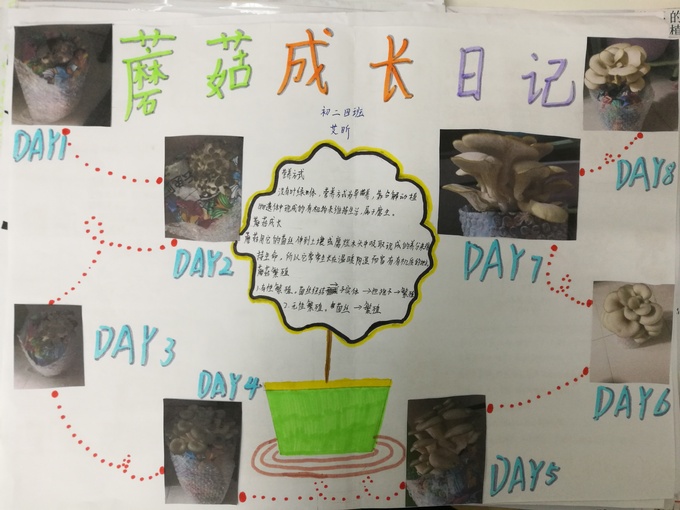 蘑菇成长日记
初二四班
艾昕
DAY1
DAY2
DAY3
DAY4
DAY5
DAY6
DAY7
DAY8
营养方式
没有叶绿体，营养方式为异养，靠分解动植
物遗体中现成的有机物来维持生活，属于腐生。
蘑菇成长
蘑菇用它的菌丝伸到土壤或腐烂木头中吸取现成的养分来维
持生命，所以它常生长在温暖阴湿
蘑菇繁殖
1.有性繁殖，菌丝 子实体→担孢子→繁殖
2.无性繁殖，菌丝→繁殖
的
植